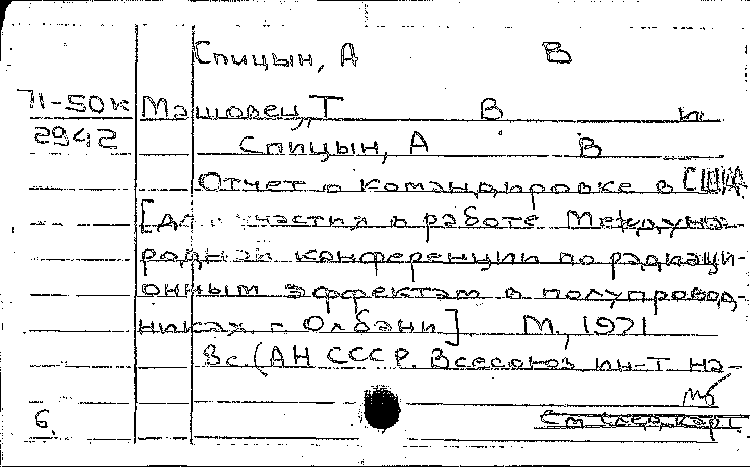 Спицын, А В
71-50к Машовец, Т В и
2942 Спицын, А В
Отчет о командировке в США
[Для участия в работе Междуна-
родной конференции по радиаци-
онным эффектам в полупровод-
никах г. Олбани]. М., 1971
8с. (АН СССР. Всесоюз ин-т на-
См след. карт.
6.